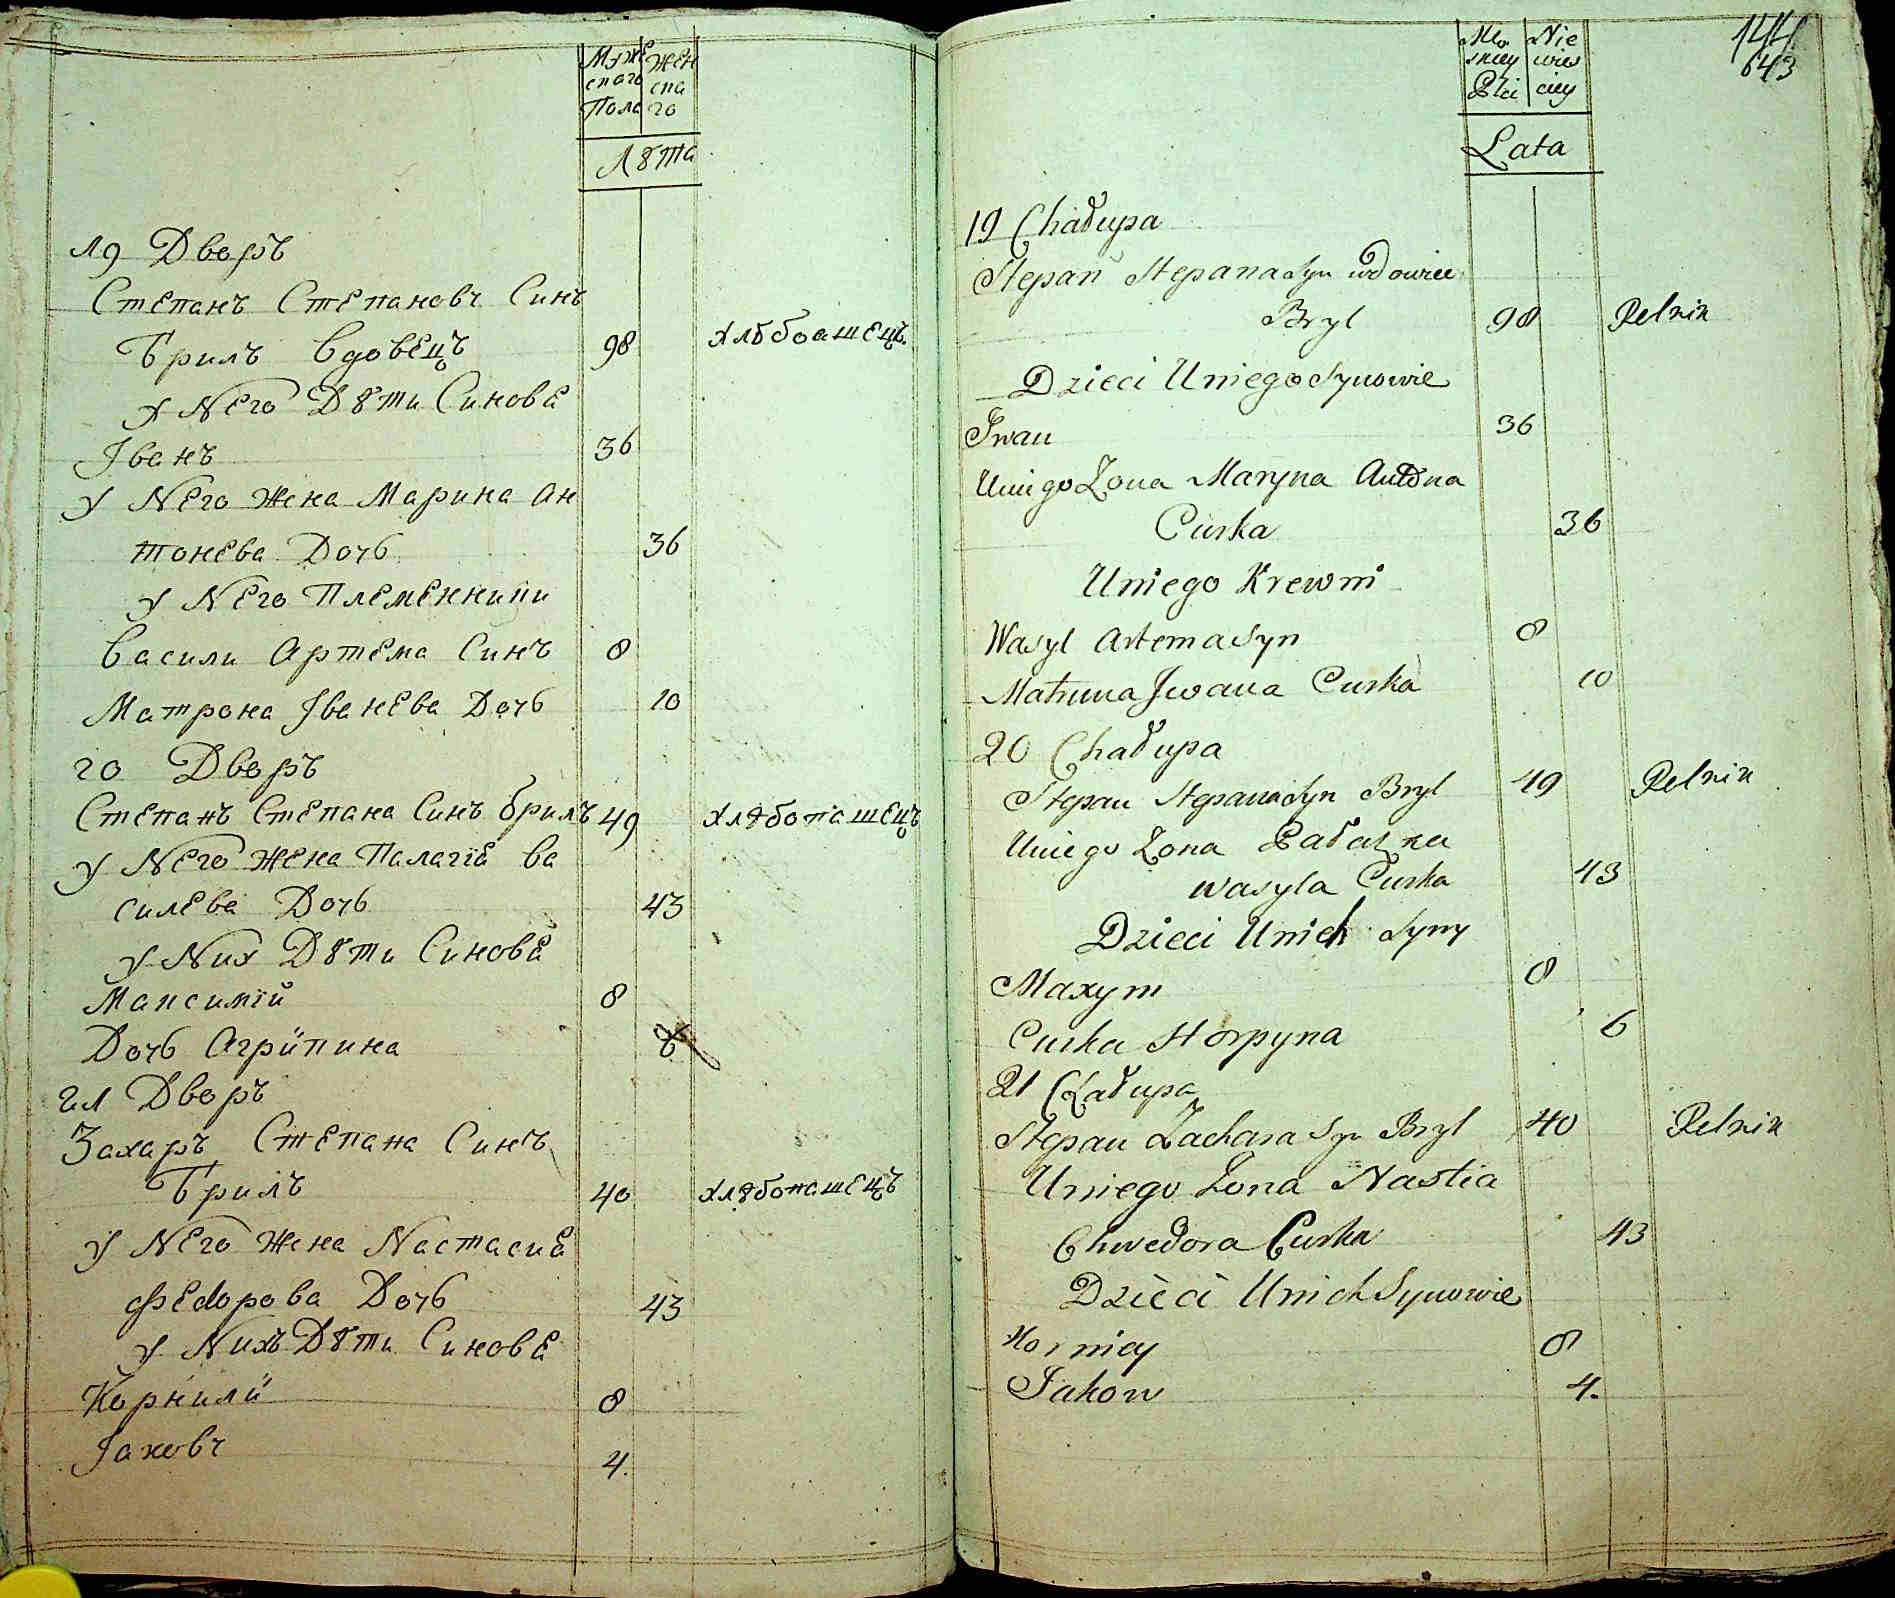 Муже
скаго
Пола
Жен
ска
го
Лѣта
19 Дворъ
Степанъ Степановъ Синъ
Брилъ Вдовецъ 98 хлѣбопашецъ.
у Него Дѣти Синове
Іванъ 36
У Него Жена Марина Ан
тонева Дочь 36
у Него Племенники
Васили Артема Синъ 8
Матрона Іванева Дочь 10
20 Дворъ
Степанъ Степана Синъ Брилъ 49 хлѣбопашецъ
у Него Жена Палагіе Ва
силева Дочь 43
у Них Дѣти Синове
Максимій 8
Дочь Агрипина 6
21 Дворъ
Захаръ Степана Синъ
Брилъ 40 хлѣбопашецъ
У Него Жена Настасие
Федорова Дочь 43
у Нихъ Дѣти Синове
Корнили 8
Іаковъ 4.
643
Lata
19 Chałupa
Stepan Stepana Syn wdowiec
Bryl 98 Relnik
Dzieci Uniego Synowie
Iwan 36
Uniego Zona Maryna Antona
Curka 36
Uniego Krewni
Wasyl Artema Syn 8
Matruna Iwana Curka 10
20 Chałupa
Stepan Stepana Syn Bryl 49 Relnik
Uniego Zona Pałazka
Wasyla Curka 43
Dzieci Unich Syny
Maxym 8
Curka Horpyna 6
21 Chałupa
Stepan Zachara Syn Bryl 40 Relnik
Uniego Zona Nastia
Chwedora Curka 43
Dzieci Unich Synowie
Horniey 8
Jakow 4.